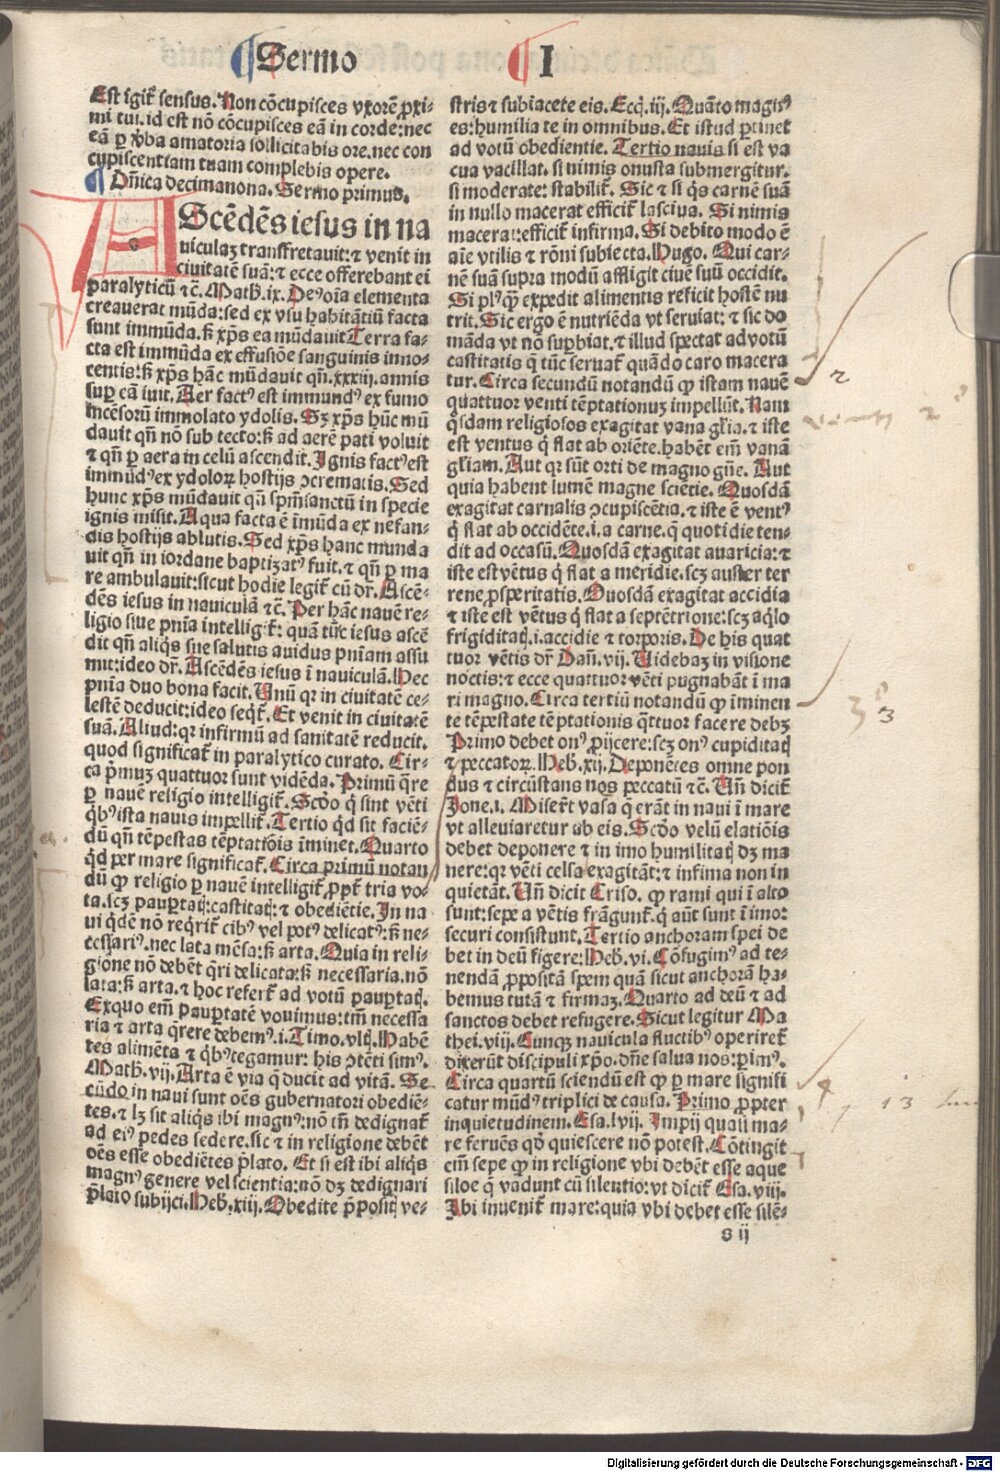 Sermo I
Est igit̃ sensus. Non cõcupisces vxorẽ ꝓxi-
mi tui. id est nõ cõcupisces eã in corde: nec
eã ꝑ v̾ba amatoria sollicitabis ore. nec con
cupiscentiam tuam complebis opere.
Dñica decimanona. Sermo primus.
AScẽdẽs iesus in na
uiculaꝫ transfretauit: ⁊ venit in
ciuitatẽ suã: ⁊ ecce offerebant ei
paralyticũ ⁊c̃. Math. ix. Deꝰ oĩa elementa
creauerat mũda: sed ex vsu habitãtiũ facta
sunt immũda. s̃ xp̃s ea mũdauit Terra fa-
cta est immũda ex effusiõe sanguinis inno-
centis: s̃ xp̃s hãc mũdauit qñ. xxxiij. annis
suꝑ eã iuit. Aer factꝰ est immundꝰ ex fumo
incẽsorũ immolato ydolis. Sꝫ xp̃s hũc mũ
dauit qñ nõ sub tecto: s̃ ad aerẽ pati voluit
⁊ qñ ꝑ aera in celũ ascendit. Ignis factꝰ est
immũdꝰ ex ydoloꝝ hostijs ↄcrematis. Sed
hunc xp̃s mũdauit qñ sp̃m̃sanctũ in specie
ignis misit. Aqua facta ẽ imũda ex nefan-
dis hostijs ablutis. Sed xp̃s hanc munda
uit qñ in iordane baptizatꝰ fuit. ⁊ qñ ꝑ ma
re ambulauit: sicut hodie legit̃ cũ dr̃. Ascẽ-
dẽs iesus in nauiculã ⁊c̃. Per hãc nauẽ re-
ligio siue pñia intelligit̃: quã tũc iesus ascẽ
dit qñ aliq̃s sue salutis auidus pñiam assu
mit: ideo dr̃. Ascẽdẽs iesus ĩ nauiculã. Hec
pñia duo bona facit. Unũ qꝛ in ciuitatẽ ce-
lestẽ deducit: ideo seqt̃. Et venit in ciuitatẽ
suã. Aliud: qꝛ infirmũ ad sanitatẽ reducit.
quod significat̃ in paralytico curato. Cir-
ca p̃muꝫ quattuor sunt vidẽda. Primũ q̃re
ꝑ nauẽ religio intelligit̃. Scd̃o q̃ sint vẽti
qbꝰ ista nauis impellit̃. Tertio qd̃ sit faciẽ-
dũ qñ tẽpestas tẽptatiõis ĩminet. Quarto
qd̃ per mare significat̃. Circa primũ notan
dũ ꝙ religio ꝑ nauẽ intelligit̃ ꝓpt̃ tria vo-
ta. scꝫ pauꝑtatꝭ: castitatꝭ: ⁊ obediẽtie. In na
ui qdẽ nõ reqrit̃ cibꝰ vel potꝰ delicatꝰ: s̃ ne-
cessariꝰ. nec lata mẽsa: s̃ arta. Quia in reli-
gione nõ debẽt qri delicata: s̃ necessaria. nõ
lata: s̃ arta. ⁊ hoc refert̃ ad votũ pauꝑtatꝭ.
Exquo em̃ pauꝑtatẽ vouimus: tm̃ necessa
ria ⁊ arta q̃rere debemꝰ. i. Timo. vltꝭ. Habẽ
tes alimẽta ⁊ qbꝰ tegamur: his ↄtẽti simꝰ.
Math. vij. Arta ẽ via q̃ ducit ad vitã. Se
cũdo in naui sunt oẽs gubernatori obediẽ-
tes. ⁊ lꝫ sit aliq̃s ibi magnꝰ: nõ tñ dedignat̃
ad eiꝰ pedes sedere. sic ⁊ in religione debẽt
oẽs esse obediẽtes p̃lato. Et si est ibi aliq̃s
magnꝰ genere vel scientia: nõ dꝫ dedignari
p̃lato subijci. Heb. xiij. Obedite p̃positꝭ ve-
stris ⁊ subiacete eis. Ecc̃i. iij. Quãto magnꝰ
es: humilia te in omnibus. Et istud ꝑtinet
ad votũ obedientie. Tertio nauis si est va
cua vacillat. si nimis onusta submergitur.
si moderate: stabilit̃. Sic ⁊ si q̃s carnẽ suã
in nullo macerat efficit̃ lasciua. Si nimis
macerat: efficit̃ infirma. Si debito modo ẽ
aĩe vtilis ⁊ rõni subiecta. Hugo. Qui car-
nẽ suã supra modũ affligit ciuẽ suũ occidit.
Si plꝰ q̃ꝫ expedit alimentis reficit hostẽ nu
trit. Sic ergo ẽ nutriẽda vt seruiat: ⁊ sic do
mãda vt nõ suꝑbiat. ⁊ illud spectat ad votũ
castitatis q̃ tũc seruat̃ quãdo caro macera
tur. Circa secundũ notandũ ꝙ istam nauẽ
quattuor venti tẽptationuꝫ impellũt. Nam
q̃sdam religiosos exagitat vana gl̃ia. ⁊ iste
est ventus q̃ flat ab oriẽte. habẽt em̃ vanã
gl̃iam. Aut qꝛ sũt orti de magno gñe. Aut
quia habent lumẽ magne sciẽtie. Quosdã
exagitat carnalis ↄcupiscẽtia. ⁊ iste ẽ ventꝰ
q̃ flat ab occidẽte. i. a carne. q̃ quotidie ten-
dit ad occasũ. Quosdã exagitat auaricia: ⁊
iste est vẽtus q̃ flat a meridie. scꝫ auster ter
rene ꝓsperitatis. Quosdã exagitat accidia
⁊ iste est vẽtus q̃ flat a septẽtrione: scꝫ aq̃lo
frigiditatꝭ. i. accidie ⁊ torporis. De his quat
tuor vẽtis dr̃ Dañ. vij. Uidebaꝫ in visione
noctis: ⁊ ecce quattuor vẽti pugnabãt ĩ ma
ri magno. Circa tertiũ notandũ ꝙ iminen
te tẽpestate tẽptationis q̃ttuor facere debꝫ
Primo debet onꝰ ꝓijcere: scꝫ onꝰ cupiditatꝭ
⁊ peccatoꝝ. Heb. xij. Deponẽtes omne pon
dus ⁊ circũstans nos peccatũ ⁊c̃. Uñ dicit̃
Jone. i. Miserũt vasa q̃ erãt in naui ĩ mare
vt alleuiaretur ab eis. Scd̃o velũ elatiõis
debet deponere ⁊ in imo humilitatꝭ dꝫ ma
nere: qꝛ vẽti celsa exagitãt: ⁊ infima non in
quietãt. Uñ dicit Criso. ꝙ rami qui ĩ alto
sunt: sepe a vẽtis frãgunt̃. q̃ aũt sunt ĩ imo:
securi consistunt. Tertio anchoram spei de
bet in deũ figere: Heb. vi. Cõfugimꝰ ad te-
nendã ꝓpositã spem quã sicut anchorã ha-
bemus tutã ⁊ firmaꝫ. Quarto ad deũ ⁊ ad
sanctos debet refugere. Sicut legitur Ma
thei. viij. Cunqꝫ nauicula fluctibꝰ operiret̃
dixerũt discipuli xp̃o. dñe salua nos: ꝑimꝰ.
Circa quartũ sciendũ est ꝙ ꝑ mare signifi
catur mũdꝰ triplici de causa. Primo ꝓpter
inquietudinem. Esa. lvij. Impij quasi ma-
re feruẽs qd̃ quiescere nõ potest. Cõtingit
em̃ sepe ꝙ in religione vbi debẽt esse aque
siloe q̃ vadunt cũ silentio: vt dicit̃ Esa. viij.
Ibi inuenit̃ mare: quia vbi debet esse silẽ-
s ij
2
3
4
Digitalisierung gefördert durch die Deutsche Forschungsgemeinschaft - DFG